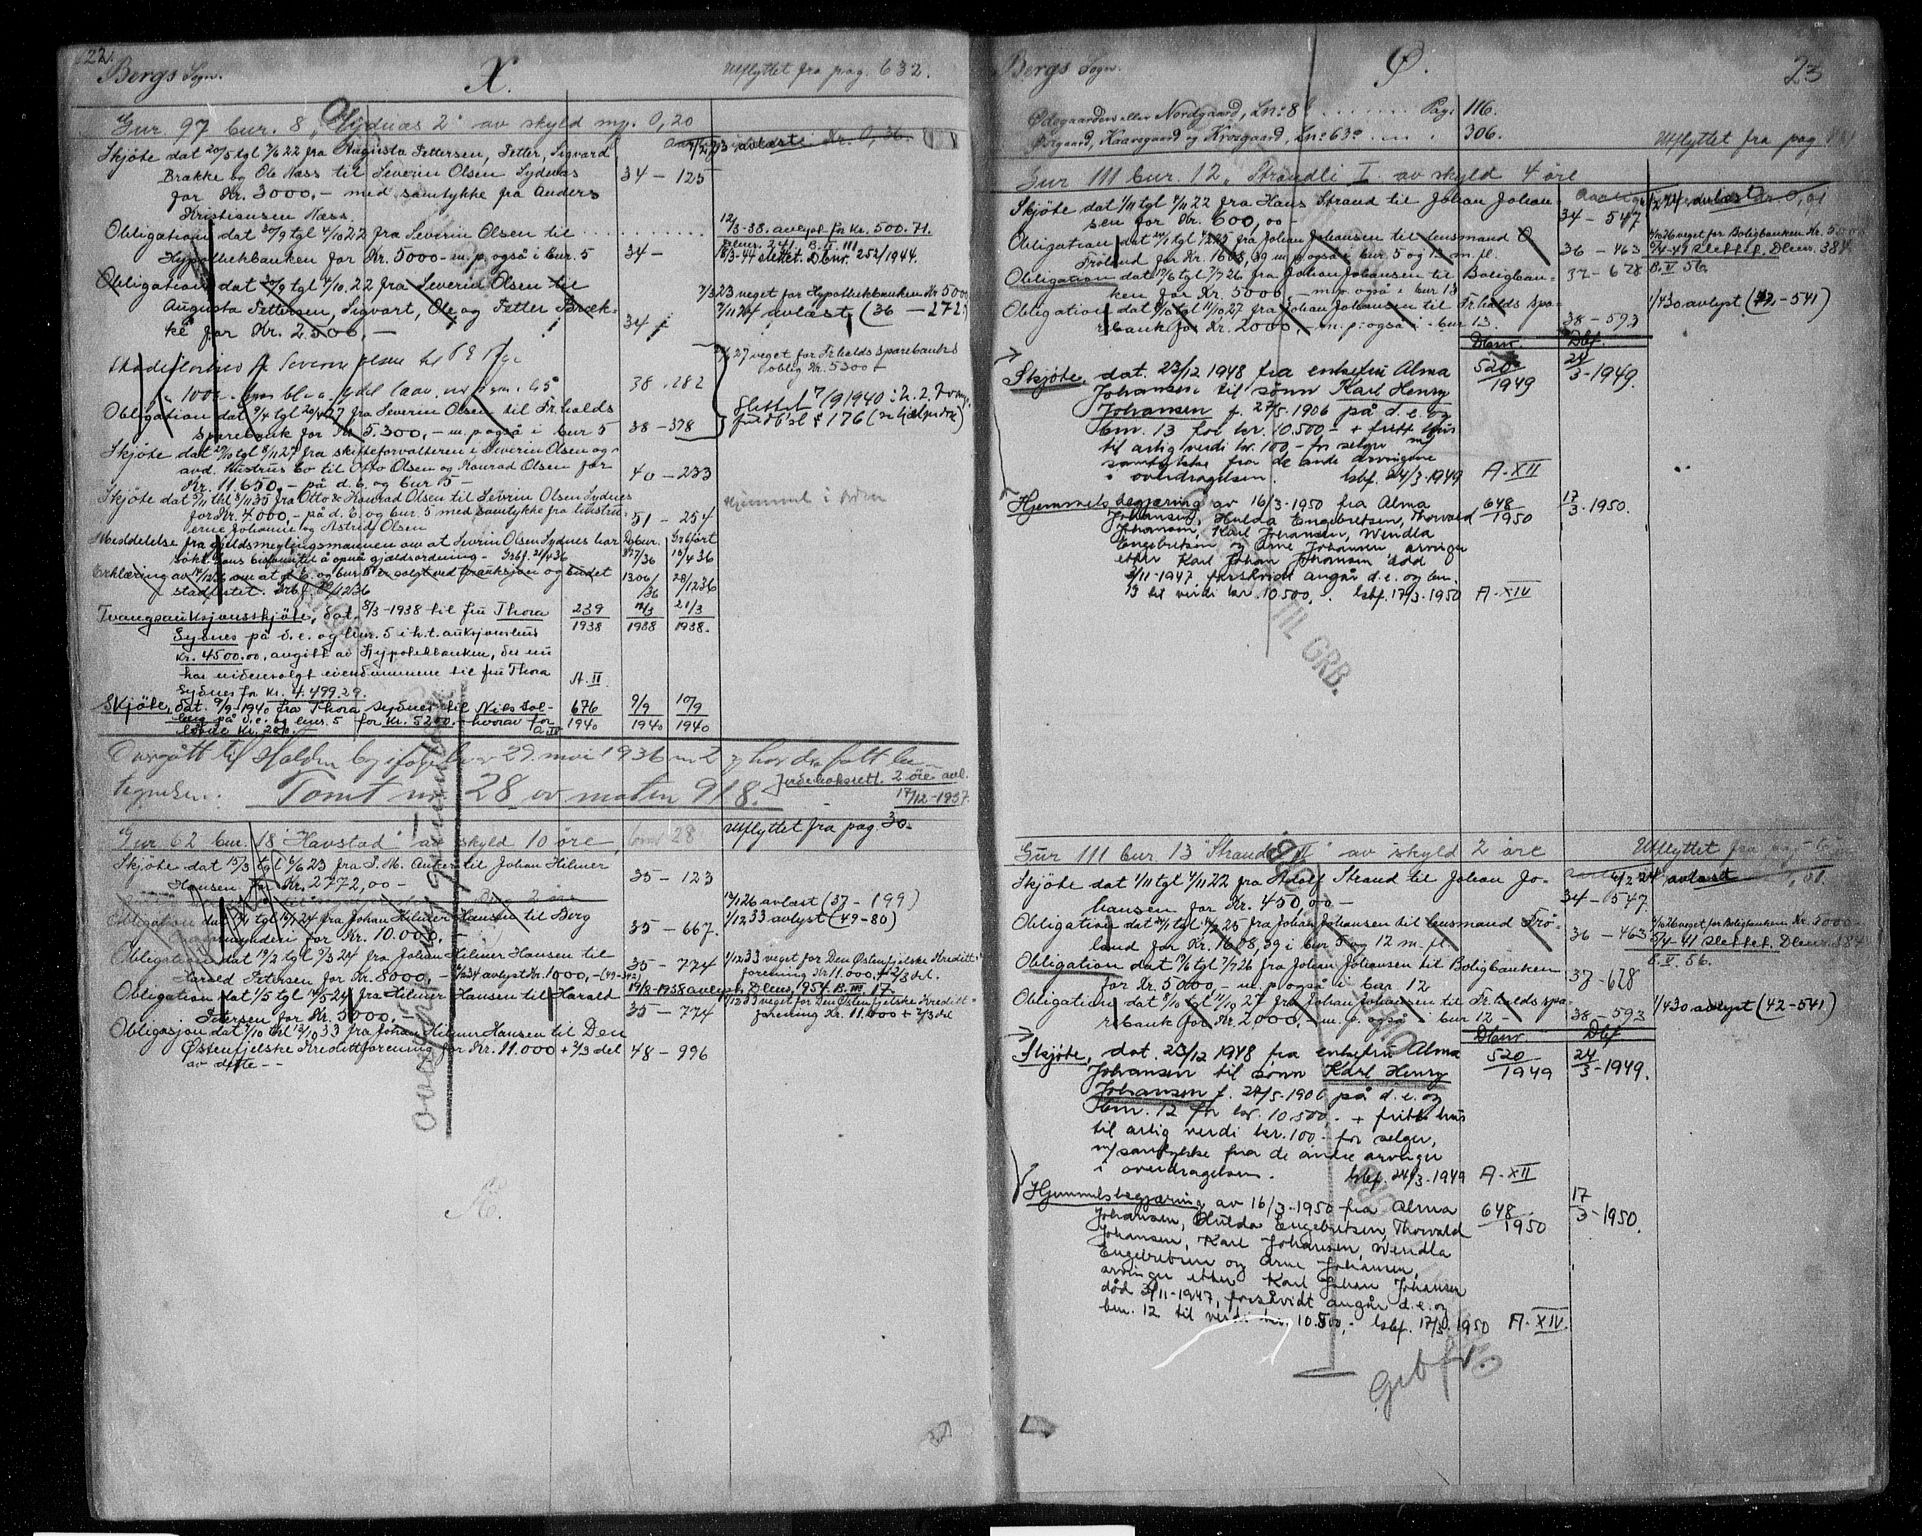 22.
Bergs Sogn. X. Utflyttet fra pag. 632.
Gnr 97 bnr. 8 "Sydnæs 2" av skyld mp. 0,20
Skjöte dat 20/5 tgl 2/6 22 fra Augusta Pettersen, Petter, Sigvard avlæst Kr. 0,36.
Brække og Ole Næss til Severin Olsen Sydnæs 34 – 125
for Kr. 3000,- med samtykke fra Anders
Kristiansen Næss.
Obligation dat 30/9 tgl 4/10 22 fra Severin Olsen til 12/3-38. avlyst for Kr. 500.71.
Hypothekbanken for Kr. 5000 - m. p. også i bnr. 5 34 – Dbnr. 241. B. II. 111
18/3-44 slettet. Dbnr. 252/1944.
Obligation dat 30/9 tgl 4/10. 22 fra Severin Olsen til
Augusta Pettersen, Sigvart, Ole og Petter Bræk- 7/3 23 veget for Hypothekbanken Kr 5000
ke for Kr. 2500,- 34 7/11 24 avlæst (36 – 272)
Severin Olsen til 27 veget for Fr.halds sparebanks
oblig Kr. 5300
38 . 282
Obligation dat 9/4 tgl 20/4 27 fra Severin Olsen til Fr.halds Slettet 7/9 1940
Sparebank for Kr 5.300,- m. p også i bnr 5 38 – 378
Skjöte dat 29/10 tgl 8/11 27 fra skifteforvalteren i Severin Olsen og
avd. hustrus bo til Otto Olsen og Konrad Olsen for 40 – 233
Kr. 11.650,- på d. E. og bnr 5 – Hjemmel i orden
Skjöte dat 5/11 tgl 8/11 35 fra Otto & Konrad Olsen til Severin Olsen Sydnes
for Kr. 4.000,- på d. E. og bnr. 5 med samtykke fra hustru- 51 – 254
erne Johanne og Astrid Olsen
Meddelelse fra gjeldsmeglingsmannen om at Severin Olsen Sydnes har Dbnr. Grbfört
søkt hans bistand til å opnå gjeldsordning - Grbf. 21/4 36 377/36 15/4 36
Erklæring av 14/12 36 om at d E. og bnr 5 er solgt ved tv.auksjon og budet 1306/36 28/12 36
stadfestet. Grbf. 28/12 36
Tvangsauksjonsskjöte, dat. 8/3-1938 til fru Thora 239/1938 12/3 1938 21/3 1938.
Sydnes på d. e. og bnr. 5 i h.t. auksjonsbud
Kr. 4500.00, avgitt av Hypotekbanken, der nu
har videresolgt eiendommene til fru Thora A. II
Sydnes for kr. 4.499.29.
Skjöte, dat. 9/9-1940 fra Thora Sydnes til Nils Sol- 676/1940 9/9 1940 10/9 1940
berg på d. e. og bnr. 5 for Kr. 5200.- hvorav for
löse Kr. 200.
Overgått til Halden by ifølge lov 29. mai 1936 nr 2 og har der fått be-
tegnelsen. Tomt nr. 28 av matr.nr 918. Jordeboksrett. 2 öre avl. 17/12-1937.
Gnr 62 bnr. 18 "Havstad" av skyld 10 öre, Utflyttet fra pag. 30.
Skjöte dat 15/3 tgl 6/6 23 fra P. M. Anker til Johan Hilmer
Hansen for Kr. 2772,00 - 35 – 123
Obligation dat tgl 1/24 fra Johan Hilmer Hansen til Berg 17/1 26 avlæst (37 - 199)
Overformynderi for Kr. 10.000,- 35 – 667. 1/12 33 avlyst (49-80)
Obligation dat 19/2 tgl 7/3 24 fra Johan Hilmer Hansen til 1/12 33 veget for Den Østenfjelske Kreditt-
Harald Petersen for Kr. 8000,- avlyst Kr. 1000,- 35 – 774 forening Kr. 11.000 + 2/3 del.
19/8-1938 avlyst, Dbnr. 1954. B. III. 17.
Obligation dat 1/5 tgl 14/5 24 fra Hilmer Hansen til Harald 1/12 33 veget for Den Østenfjelske Kreditt-
Petersen for Kr. 5000,- 35 – 774 forening Kr. 11.000 + 2/3 del
Obligasjon dat 7/10 tgl 12/10 33 fra Johan Hilmer Hansen til Den
Østenfjelske Kredittforening for Kr. 11.000 + 2/3 del 48 – 996
av dette - -
Æ.
Bergs Sogn. Ø. 23
Ødegaarden eller Nordgaard, Lnr 8 Pag. 116.
Østgaard, Haavegaard og Kirkegaard, Lnr 63 306.
Utflyttet fra pag
Gnr 111 bnr. 12 "Strandli I" av skyld 4 öre
Skjöte dat 1/11 tgl 4/11 22 fra Hans Strand til Johan Johan-
sen for Kr. 600,00 - 34 – 547
Obligation dat 24/1 tgl 25 fra Johan Johansen til lensmand veget for Boligbanken Kr. 5000
Fröland for Kr. 1608,39 m. p. også i bnr. 5 og 13 m. fl. 36 – 463 slettet. Dbnr. 384.
Obligation dat 17/6 tgl 7/7 26 fra Johan Johansen til Boligban- 37 – 628 B. V. 56.
ken for Kr. 5000,- m. p også i bnr 13
Obligation dat 8/10 tgl 11/10 27 fra Johan Johansen til Fr.halds spa- 1/4 30 avlyst (42-541)
rebank for Kr. 2000,- m. p. også i bnr 13. 38 – 593
Dbnr. Dbf.
Skjöte, dat. 23/12 1948 fra enkefru Alma 520/1949 24/3-1949.
Johansen til sønn Karl Henry
Johansen f. 27/5-1906 på d. e. og
bnr. 13 for kr. 10.500.- + fritt hus
til årlig verdi kr. 100,- for selger m/
samtykke fra de andre arvinger
i overdragelsen. Grbf. 24/3-1949 A-XII
Hjemmelsbegjæring av 16/3-1950 fra Alma 648/1950 17/3-1950.
Johansen, Hulda Engebretsen, Thorvald
Johansen, Karl Johansen, Wendla
Engebretsen og Arne Johansen arvinger
etter Karl Johan Johansen död
3/11-1947, forsåvidt angår d. e. og bnr.
13 til verdi kr. 10.500,-. Grbf. 17/3-1950 A-XIV
TIL GRB.
Gnr 111 bnr 13 "Strandli II" av skyld 2 öre Utflyttet fra pag
Skjöte dat 1/11 tgl 4/11 22 fra Adolf Strand til Johan Jo-
hansen for Kr. 450,00 - 34 – 547.
Obligation dat 24/1 tgl 25 fra Johan Johansen til lensmand Frö- veget for Boligbanken Kr. 5000
land for Kr. 1608,39 i bnr 5 og 12 m. fl 36 – 463 5/4-41 slettet. Dbnr. 384
Obligation dat 17/6 tgl 7/7 26 fra Johan Johansen til Boligbanken B. V. 56.
for Kr. 5000,- m. p også i bnr 12 37 – 628
Obligation dat 8/10 tgl 11/10 27 fra Johan Johansen til Fr.halds spa- 1/4 30 avlyst (42-541)
rebank for Kr. 2000,- m. p. også i bnr 12 - 38 – 593
Dbnr. Dbf
Skjöte, dat. 23/12 1948 fra enkefru Alma 520/1949 24/3-1949.
Johansen til sønn Karl Henry
Johansen f. 27/5-1906 på d. e. og
bnr. 12 for kr. 10.500.- + fritt hus
til årlig verdi kr. 100 - for selger,
m/samtykke fra de andre arvinger
i overdragelsen. Grbf. 24/3-1949 A-XII
Hjemmelsbegjæring av 16/3-1950 fra Alma 648/1950 17/3-1950.
Johansen, Hulda Engebretsen, Thorvald
Johansen, Karl Johansen, Wendla
Engebretsen og Arne Johansen,
arvinger etter Karl Johan Johansen
död 3/11-1947, forsåvidt angår d. e. og
bnr. 12 til verdi kr. 10.500,- Grbf. 17/3 1950 A-XIV.
Grbf.